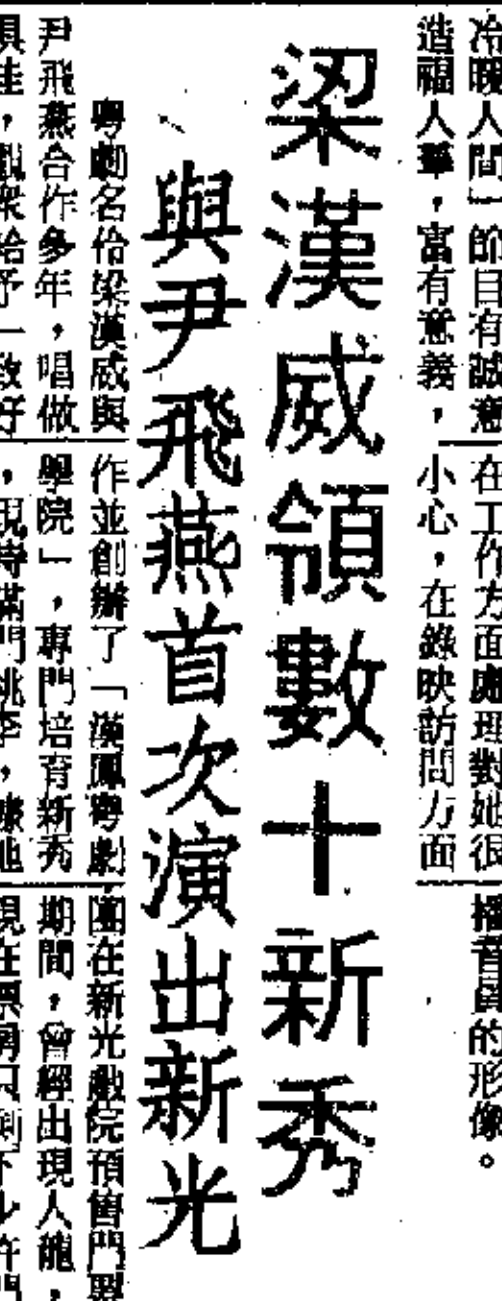 冷暖人間」節目有誠意
造福人羣，富有意義，
在工作方面處理對她很
小心，在錄映訪問方面
播音員的形像。
梁漢威領數十新秀
與尹飛燕首次演出新光
粵劇名伶梁漢威與
尹飛燕合作多年，唱做
俱佳，觀衆給予一致好
作並創辦了「漢鳳粵劇
學院」，專門培育新秀
，現時滿門桃李，據他
團在新光戲院預售門票
期間，曾經出現人龍，
現在票房只剩下少許門